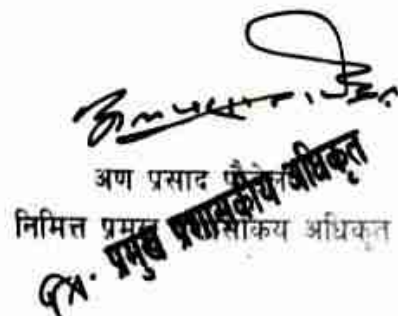 अण प्रसाद पौडेल
निमित्त प्रमुख प्रशासकिय अधिकृत
प्रमुख प्रशासकीय अधिकृत